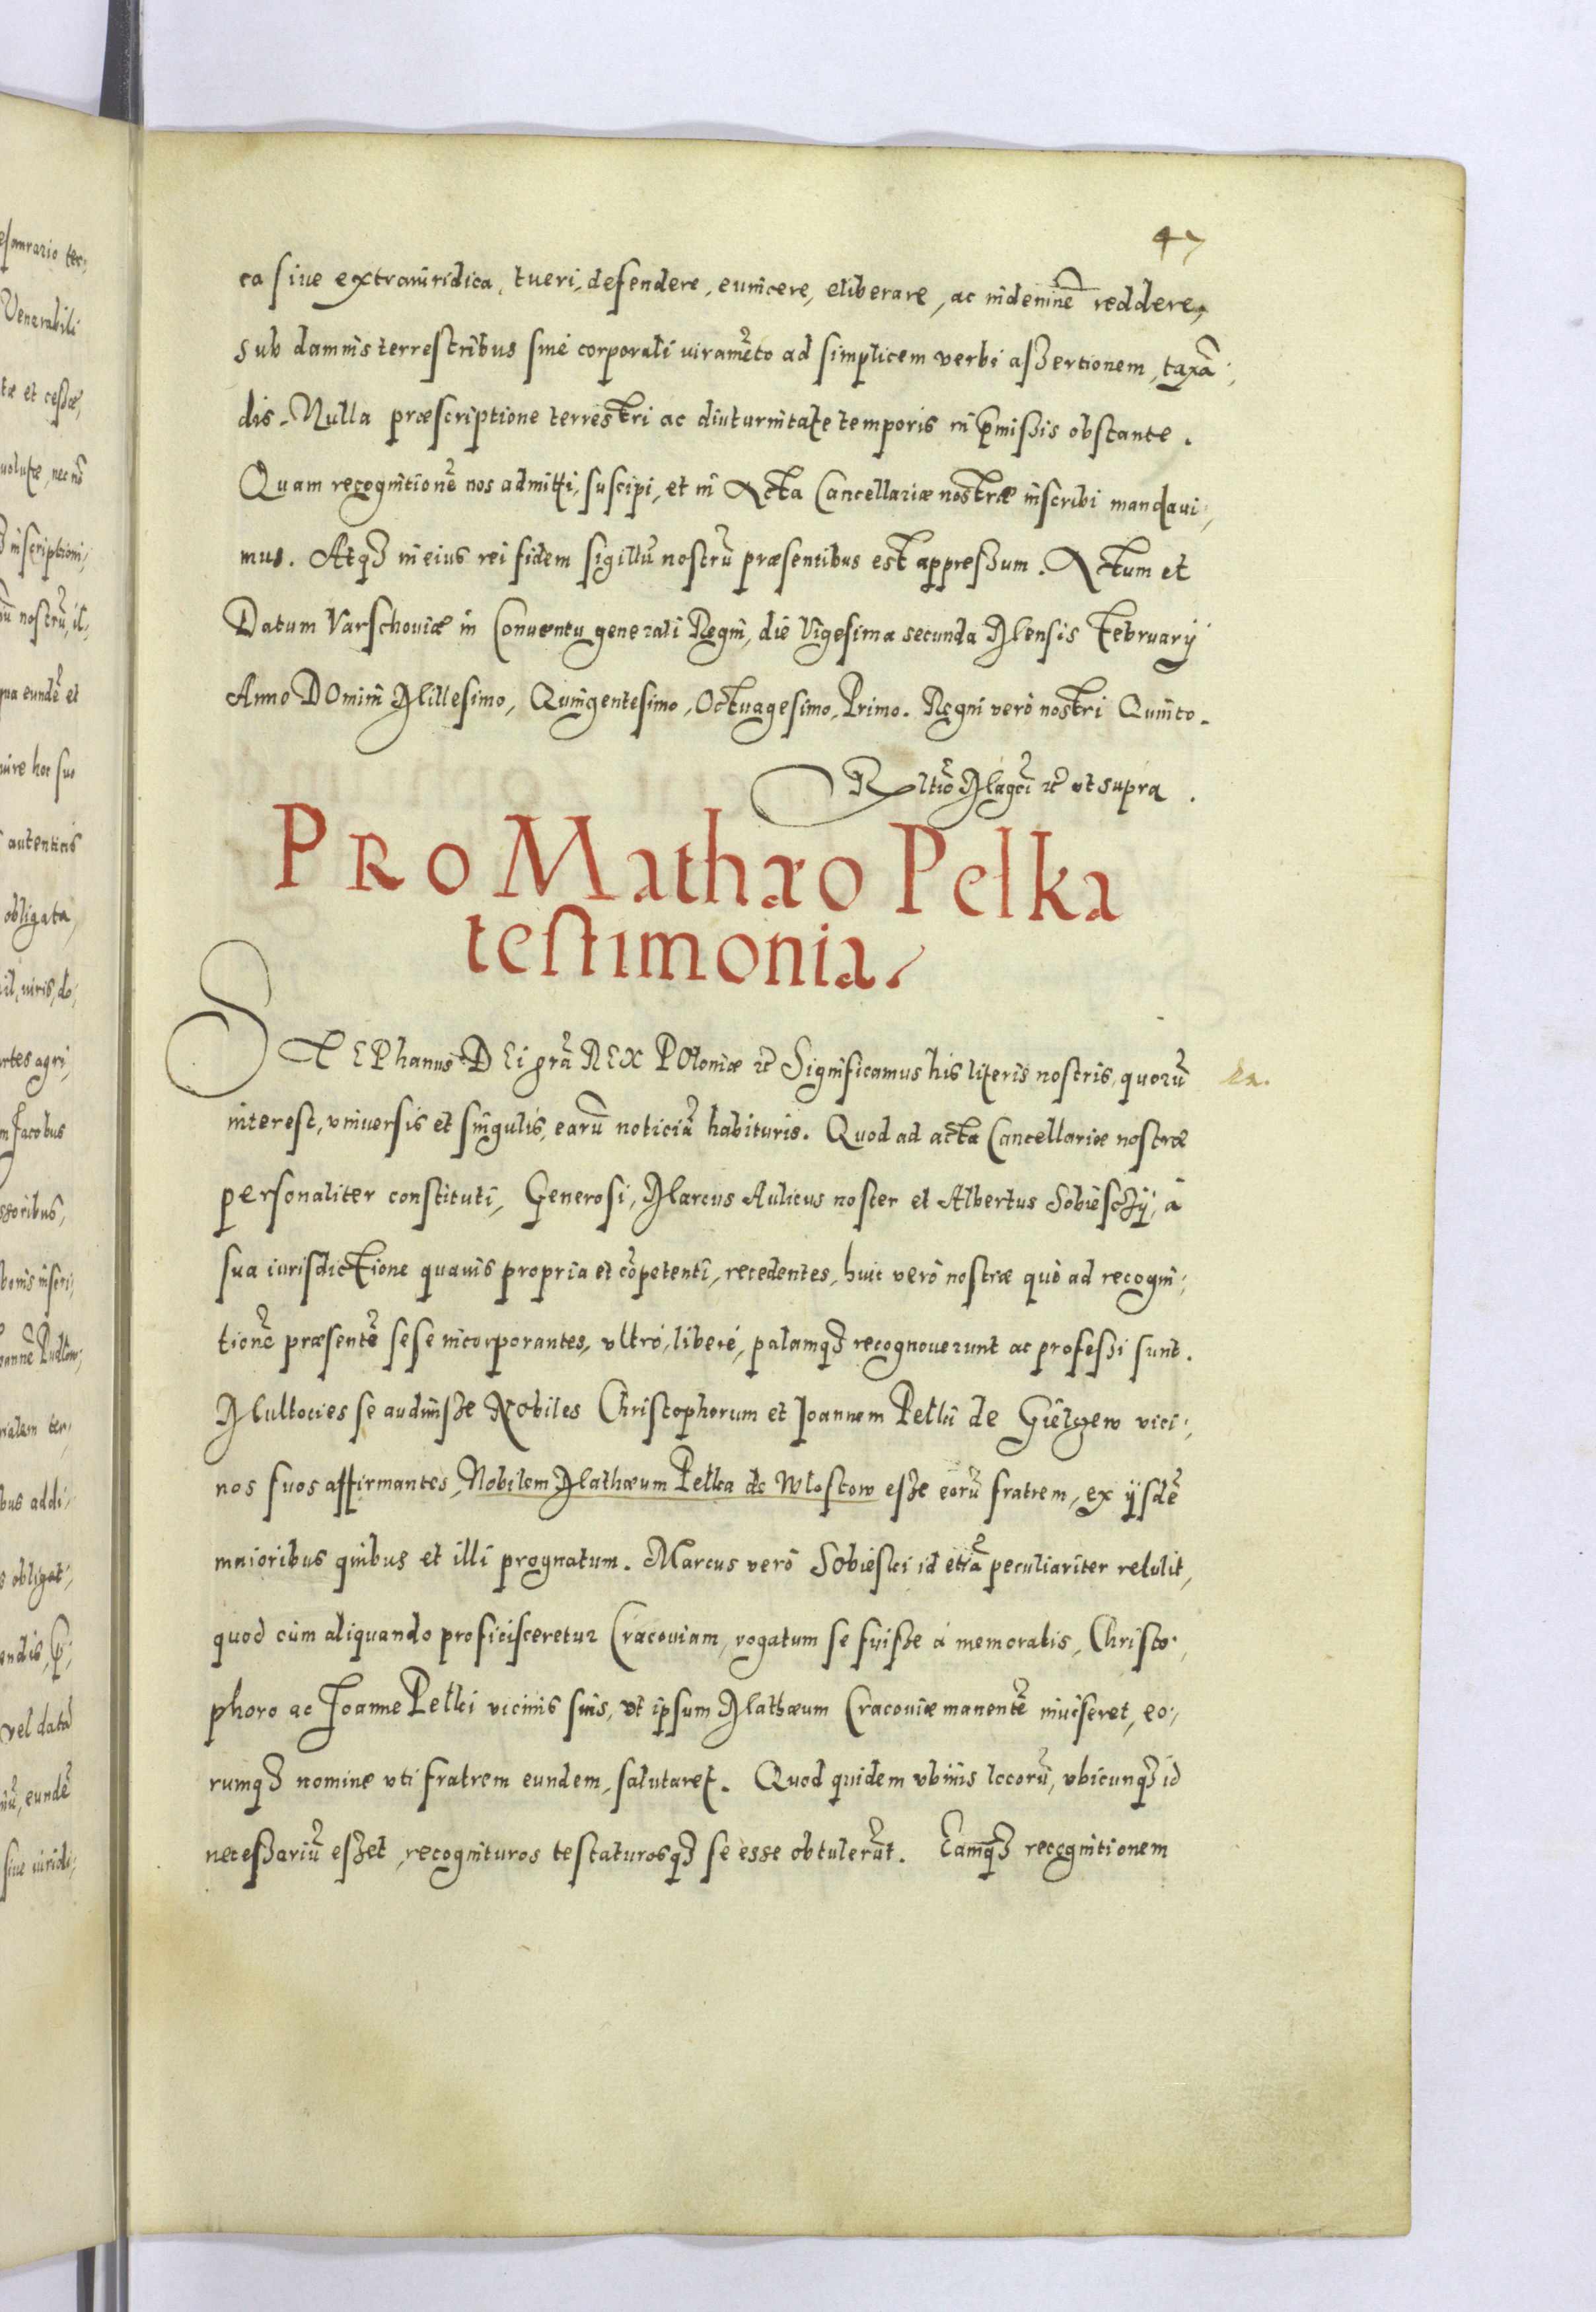 47
ca siue extraiuridica, tueri, defendere, euincere, eliberare, ac indemnē reddere,
sub damnis terrestribus sinè corporali iuramēto ad simplicem verbi assertionem, taxā:
dis. Nulla præscriptione terrestri ac diuturnitate temporis in p̄missis obstante.
Quam recognitionē nos admitti, suscipi, et in Acta Cancellariæ nostræ inscribi mandaui:
mus. Atq3 in eius rei fidem sigillū nostrū præsentibus est appressum. Actum et
Datum Varschouiæ in Conuentu generali Regni, die Vigesima secunda Mensis February
Anno DOmini Millesimo, Quingentesimo, Octuagesimo, Primo. Regni verò nostri Quinto.
Rltio Magci &c vt supra.
PRO Mathæo Pelka
testimonia.
STEPhanus DEi grā REX POloniæ &c Significamus his literis nostris, quorū
interest, vniuersis et singulis, earū noticiā habituris. Quod ad acta Cancellariæ nostræ
personaliter constituti, Generosi, Marcus Aulicus noster et Albertus Sobiesczÿ, à
sua iurisdictione quauis propria et cōpetenti, recedentes, huic verò nostræ quò ad recogni:
tionē præsentē sese incorporantes, vltrò, liberè, palamq3 recognouerunt ac professi sunt.
Multocies se audiuisse Nobiles Christophorum et Joannem Pelki de Gielzew vici:
nos suos affirmantes, Nobilem Mathæum Pelka de Wlostow esse eorū fratrem, ex ijsdē
maioribus quibus et illi prognatum. Marcus verò Sobieski id etiā peculiariter retulit,
quod cùm aliquando proficisceretur Cracouiam, rogatum se fuisse à memoratis, Christo:
phoro ac Joanne Pelki vicinis suis, vt ipsum Mathæum Cracouiæ manentē inuiseret, eo:
rumq3 nomine vti fratrem eundem, salutaret. Quod quidem vbiuis locorū, vbicunq3 id
necessariū esset, recognituros testaturosq3 se esse obtulerūt. Eamq3 recognitionem